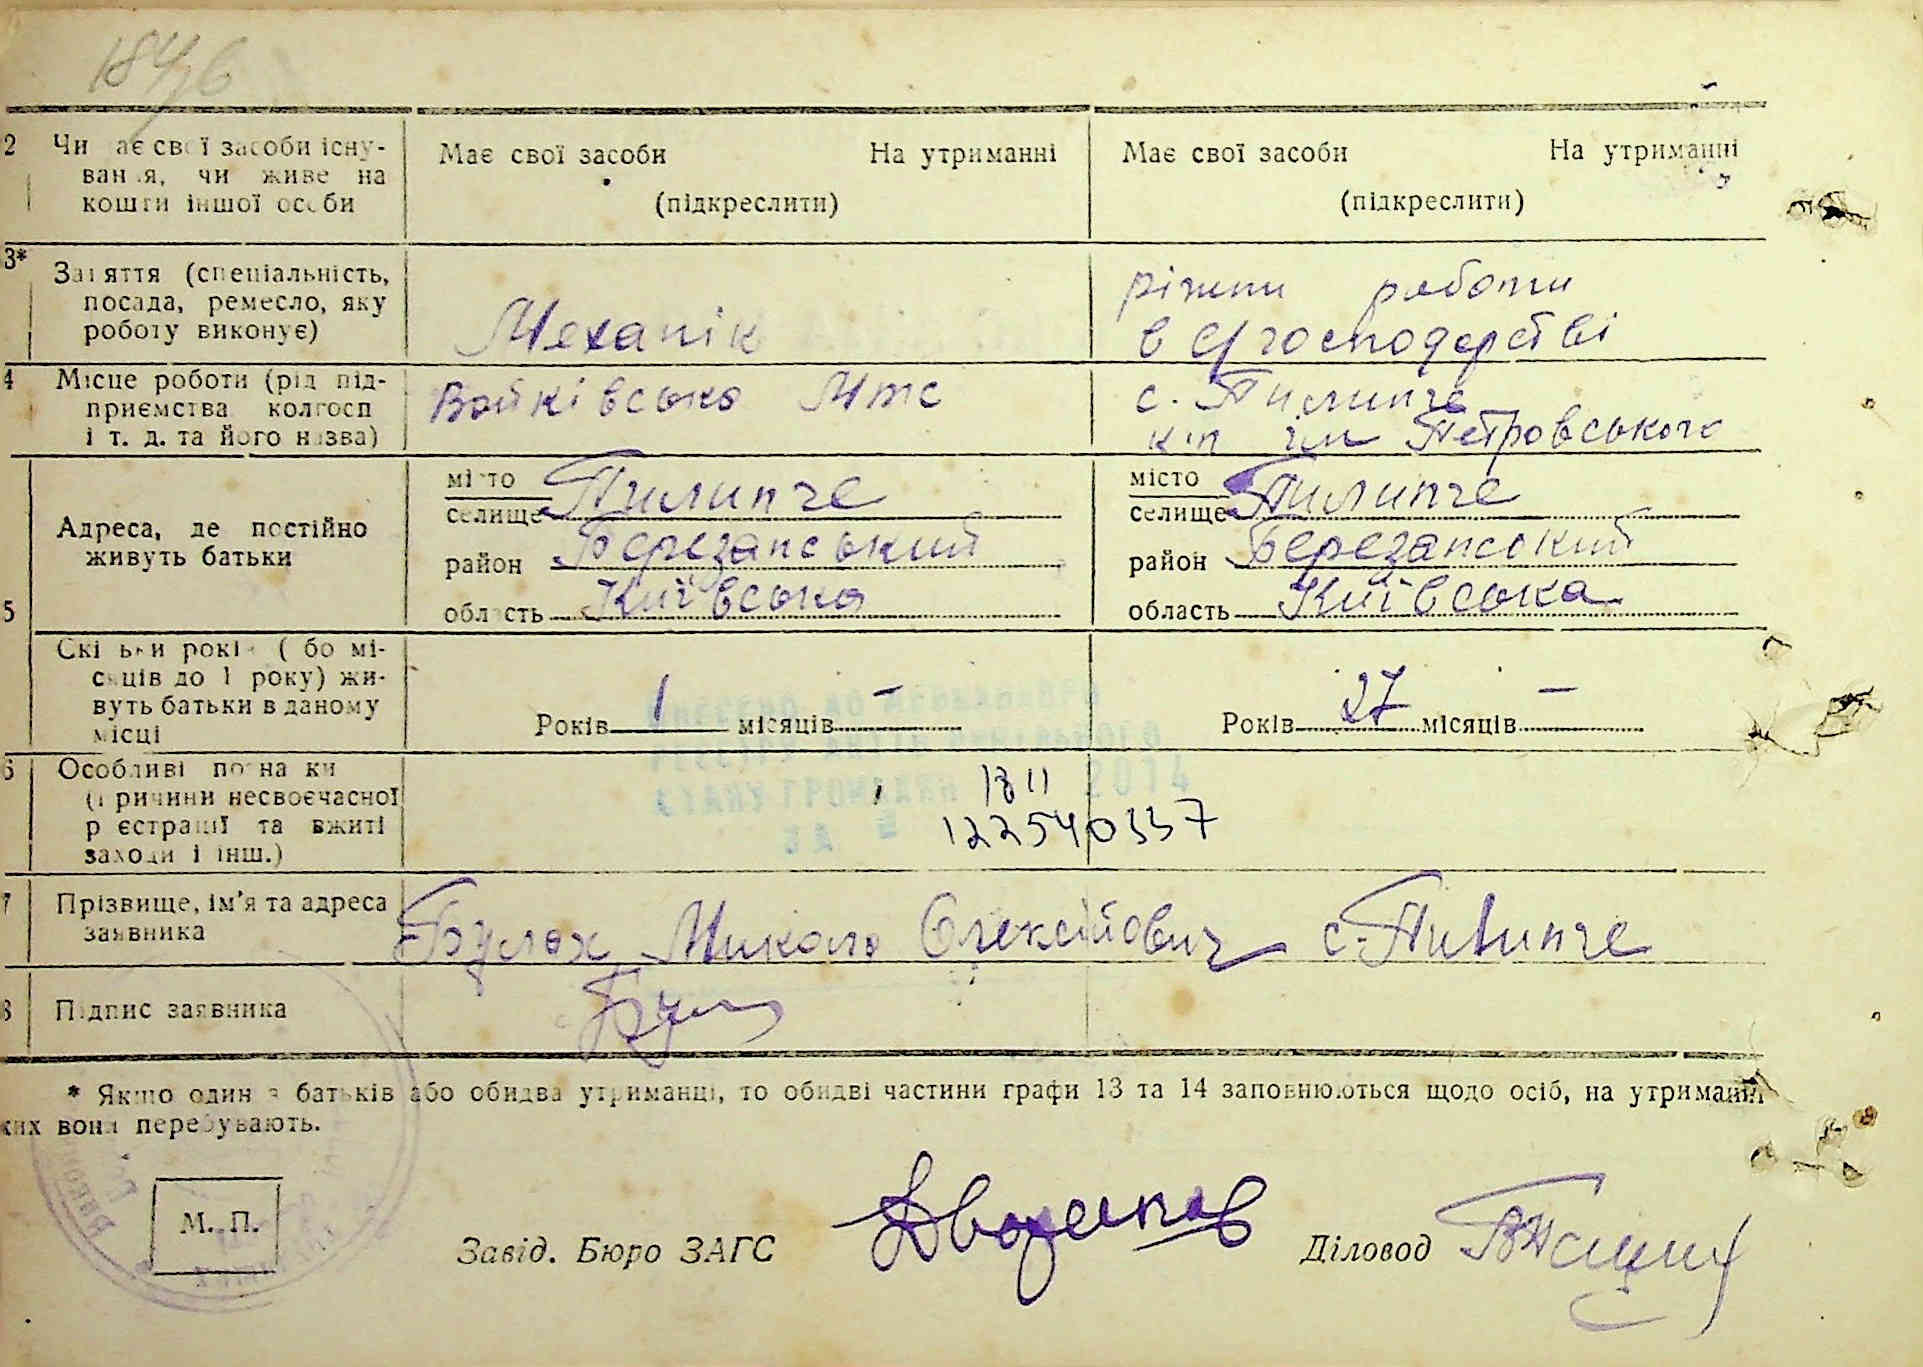 184/6
2 Чи має свої засоби існу-
вання, чи живе на
кошти іншої особи
Має свої засоби На утриманні
(підкреслити)
Має свої засоби На утриманні
(підкреслити)
3* Заняття (спеціальність,
посада, ремесло, яку
роботу виконує)
Механік
різни роботи
в с/господарстві
4 Місце роботи (рід під-
приємства колгосп
і т. д. та його назва)
Войківсько Мтс
с. Пилипче
к-п ім Петровського
5 Адреса, де постійно
живуть батьки
місто
селище Пилипче
район Березанський
область Київська
місто
селище Пилипче
район Березанський
область Київська
Скільки років (або мі-
сяців до 1 року) жи-
вуть батьки в даному
місці
Років 1 місяців —
Років 27 місяців —
6 Особливі познаки
(причини несвоєчасної
реєстрації та вжиті
заходи і інш.)
ВНЕСЕНО ДО ДЕРЖАВНОГО
РЕЄСТРУ АКТІВ ЦИВІЛЬНОГО
СТАНУ ГРОМАДЯН 18 11 2014
ЗА №
122540337
7 Прізвище, ім'я та адреса
заявника
Булах Микола Олексійович с. Пилипче
8 Підпис заявника
Бул
* Якщо один з батьків або обидва утриманці, то обидві частини графи 13 та 14 заповнюються щодо осіб, на утриманні
яких вони перебувають.
М. П.
Завід. Бюро ЗАГС
Діловод